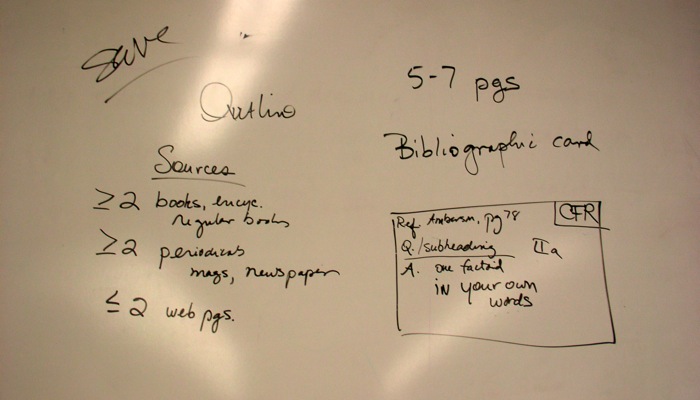 Save
Outline
Sources
≥2 books, encyc.
regular books
≥2 periodicals
mags, newspaper
≤2 web pgs.
5-7 pgs
Bibliographic card
CFR
Ref Anderson, pg 78
Q./subheading IIa
A. one factoid
in your own
words